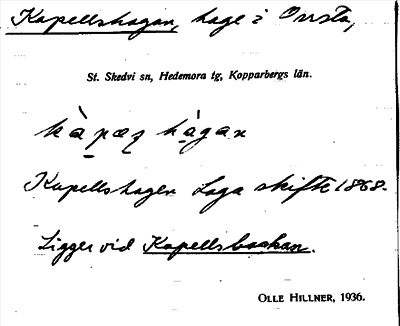 Kapellshagan, hage i Orrsta,
St. Skedvi sn, Hedemora tg, Kopparbergs län.
kàpæȥ hágan
Kapellshagen Laga skifte 1868.
Ligger vid Kapellsbackan.
OLLE HILLNER, 1936.